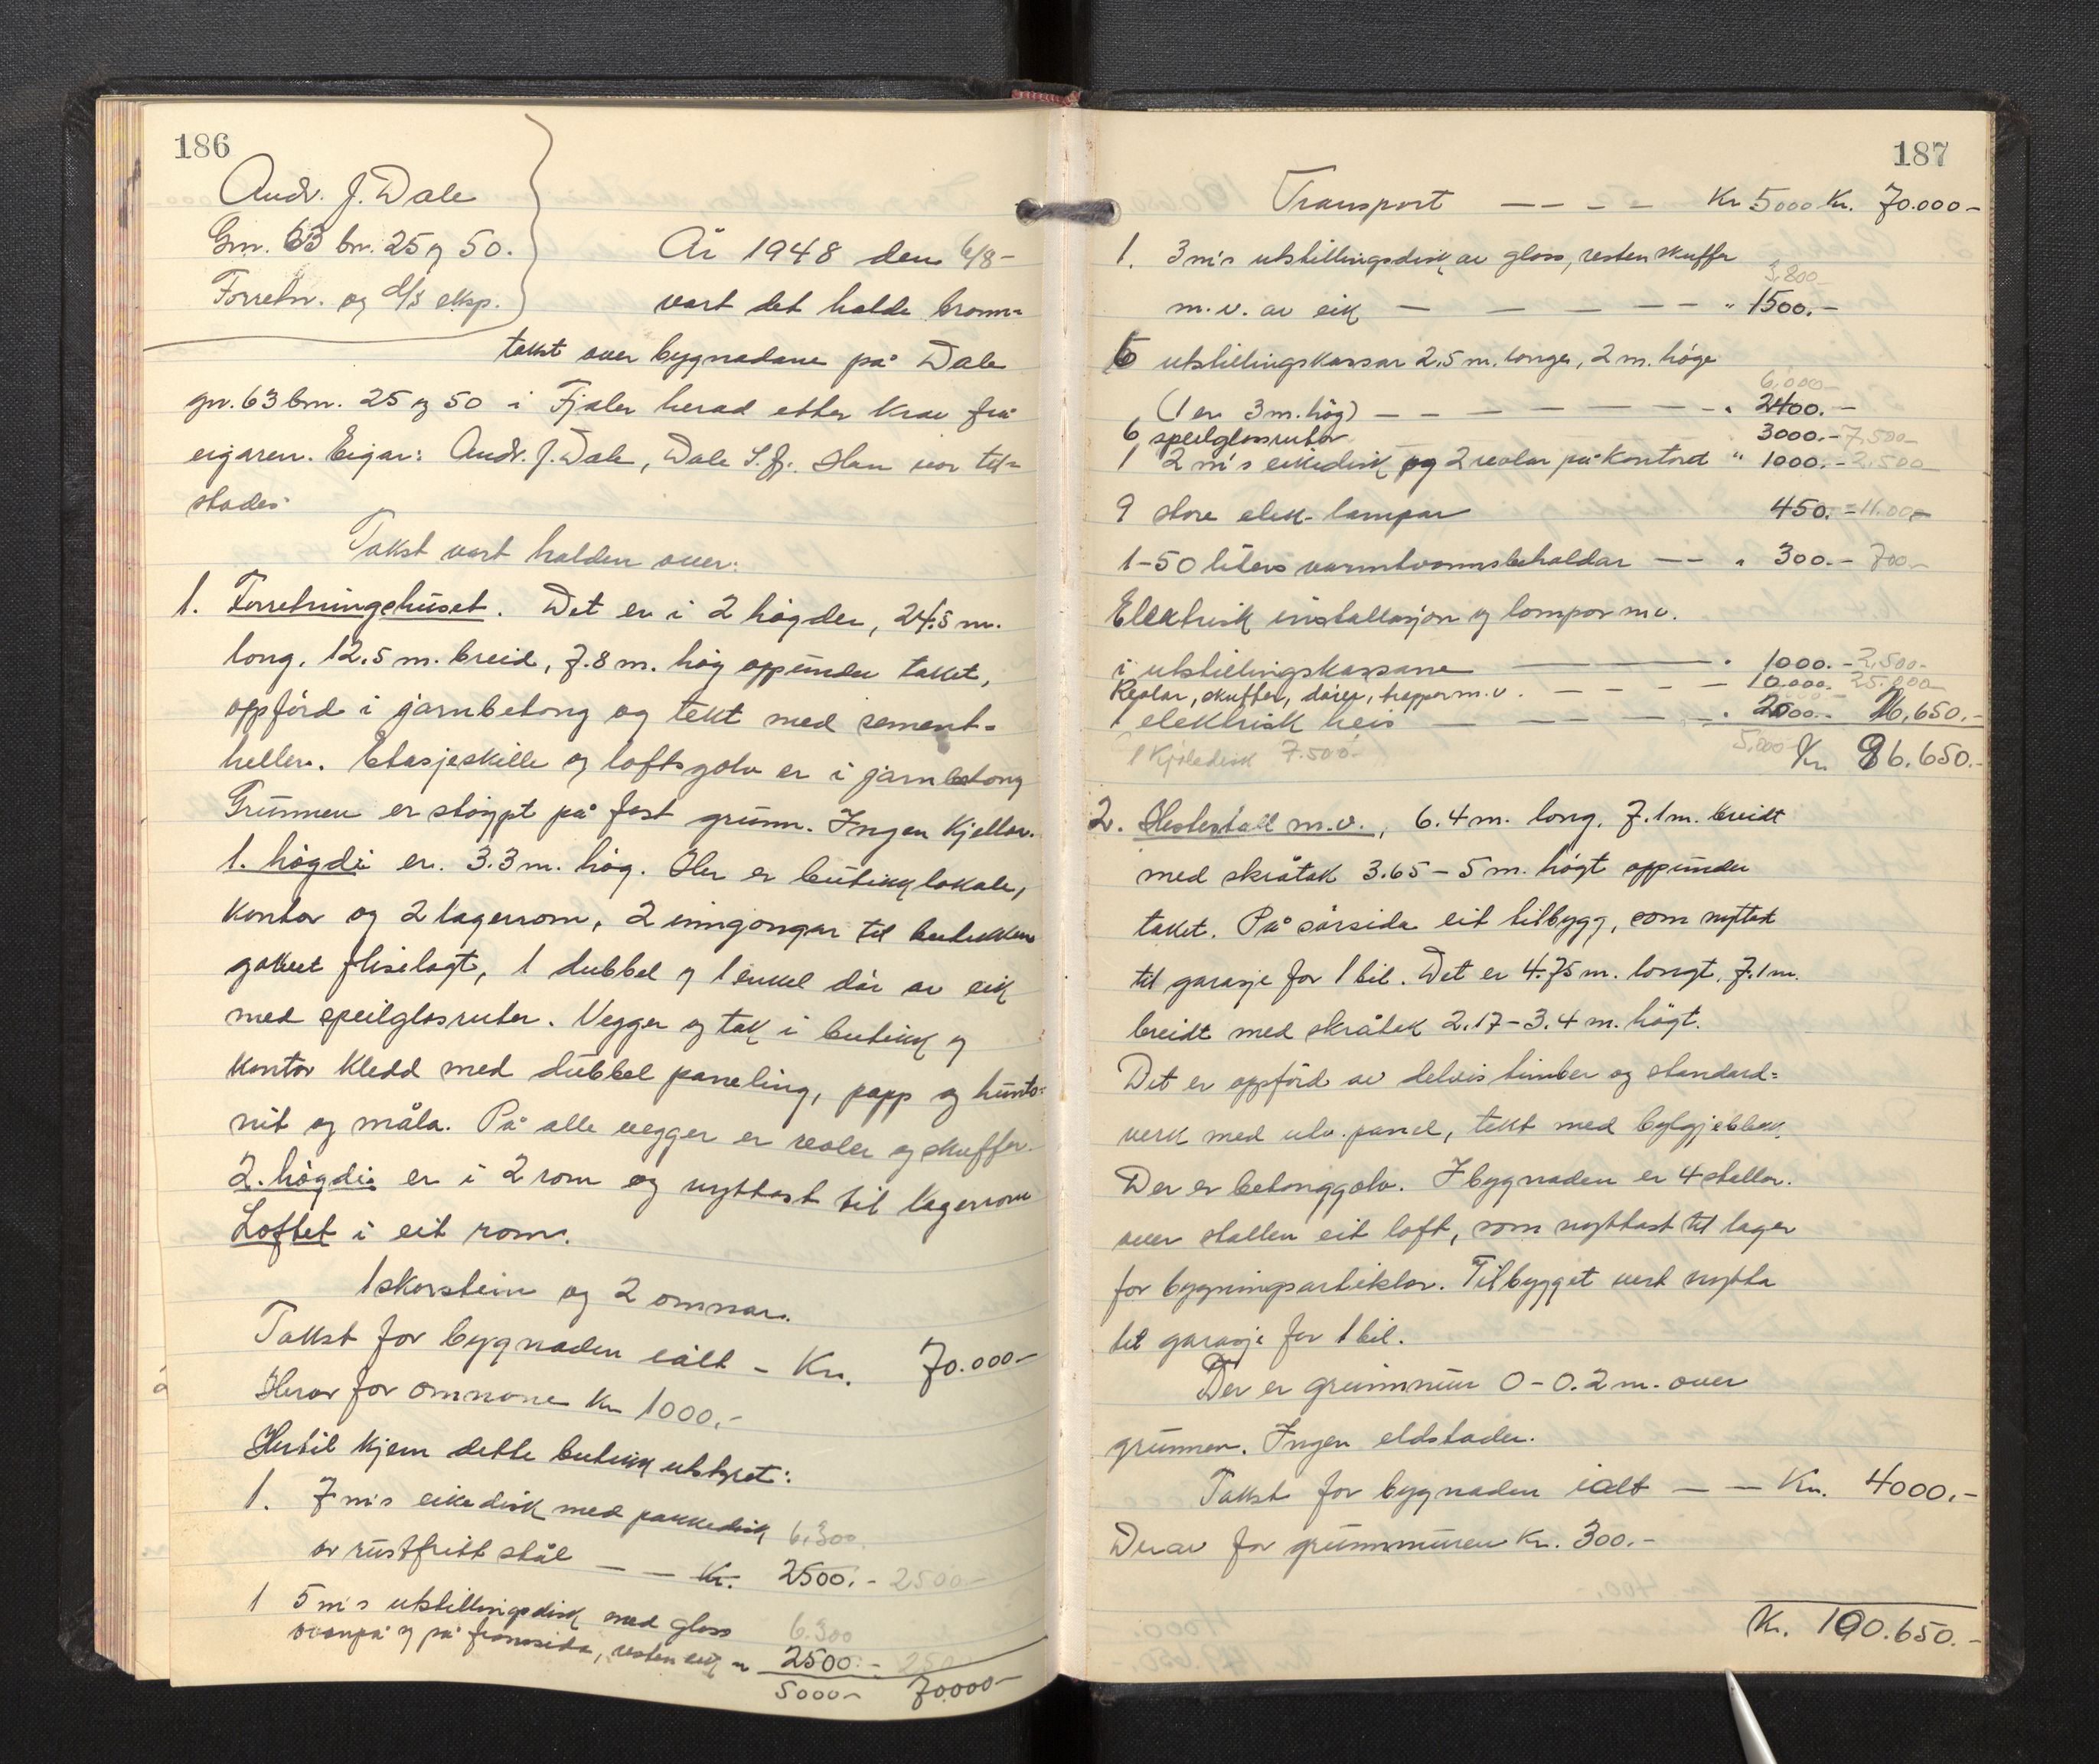 186
Andr. J. Dale
Gnr. 63 bnr. 25 og 50.
Forretn. og d/s eksp.
År 1948 den 6/8-
vart det halde brann=
takst over bygnadane på Dale
gnr. 63 bnr. 25 og 50 i Fjaler herad etter krav frå
eigaren. Eigar: Andr. J. Dale, Dale S.fj. Han var til=
stades.
Takst vart halden over:
1. Forretningshuset. Det er i 2 högder, 24.5 m.
long, 12.5 m. breid, 7.8 m. hög oppunder taket,
oppförd i jarnbetong og tekt med sement-
heller. Etasjeskille og loftsgolv er i jarnbetong
Grunnen er stöypt på fast grunn. Ingen kjellar.
1. högdi er 3.3 m. hög. Her er butikklokale,
kontor og 2 lagerrom, 2 inngongar til butikken
golvet fliselagt, 1 dubbel og 1 enkel dör av eik
med speilglasruter. Vegger og tak i butikk og
kontor kledd med dubbel paneling, papp og hunto=
nit og måla. På alle vegger er reoler og skuffer.
2. högdi er i 2 rom og nyttast til lagerrom
Loftet i eit rom.
1 skorstein og 2 omnar.
Takst for bygnaden ialt - Kr. 70.000-
Herav for omnane Kr 1000.-
Hertil kjem dette butikkutstyret:
1. 7 m's eikedisk med pakkedisk 6.300
av rustfritt stål — — Kr. 2500.- 2500-
1 5 m's utstillingsdisk med glass 6.300
ovanpå og på framsida, resten eik " 2500.- 250
5000- 70.000-
187
Transport — — — — Kr 5000 Kr. 70.000-
1. 3 m's utstillingsdisk av glass, resten skuffer
3,800
m.v. av eik — — — — — " 1500.-
6 utstillingskassar 2.5 m. longe, 2 m. höge
6,000-
(1 er 3 m. hög) — — — — — — " 2400.-
6 speilglassruter 3000.- 7,500-
1 2 m's eikedisk og 2 reolar på kontoret " 1000.- 2.500
9 store elek. lampar 450.-
1-50 liters varmtvannsbehaldar — — " 300.- 700-
Elektrisk installasjon og lampor m.v.
i utstillingskassane — — " 1000.- 2,500-
Reolar, skuffer, dörer, trapper m.v. — — — — 10.000.- 25.000
1 elektrisk heis — — — — — " 2000.- 16,650.-
1 Kjöledisk 7.500.- 5,000- Kr. 86.650.-
2. Hestestall m.v., 6.4 m. long, 7.1 m. breidt
med skråtak 3.65 - 5 m. högt oppunder
taket. På sörsida eit tilbygg, som nyttast
til garasje for 1 bil. Det er 4.75 m. longt, 7.1 m.
breidt med skråtak 2.17 - 3.4 m. högt.
Det er oppförd av delvis timber og standard=
verk med utv. panel, tekt med bylgjeblekk.
Der er betonggolv. I bygnaden er 4 stallar.
over stallen eit loft, som nyttast til lager
for bygningsartiklar. Tilbygget vert nytta
til garasje for 1 bil.
Der er grunnmur 0 - 0.2 m. over
grunnen. Ingen eldstader.
Takst for bygnaden ialt — — Kr. 4000.-
Derav for grunnmuren Kr. 300.-
Kr. 190.650.-